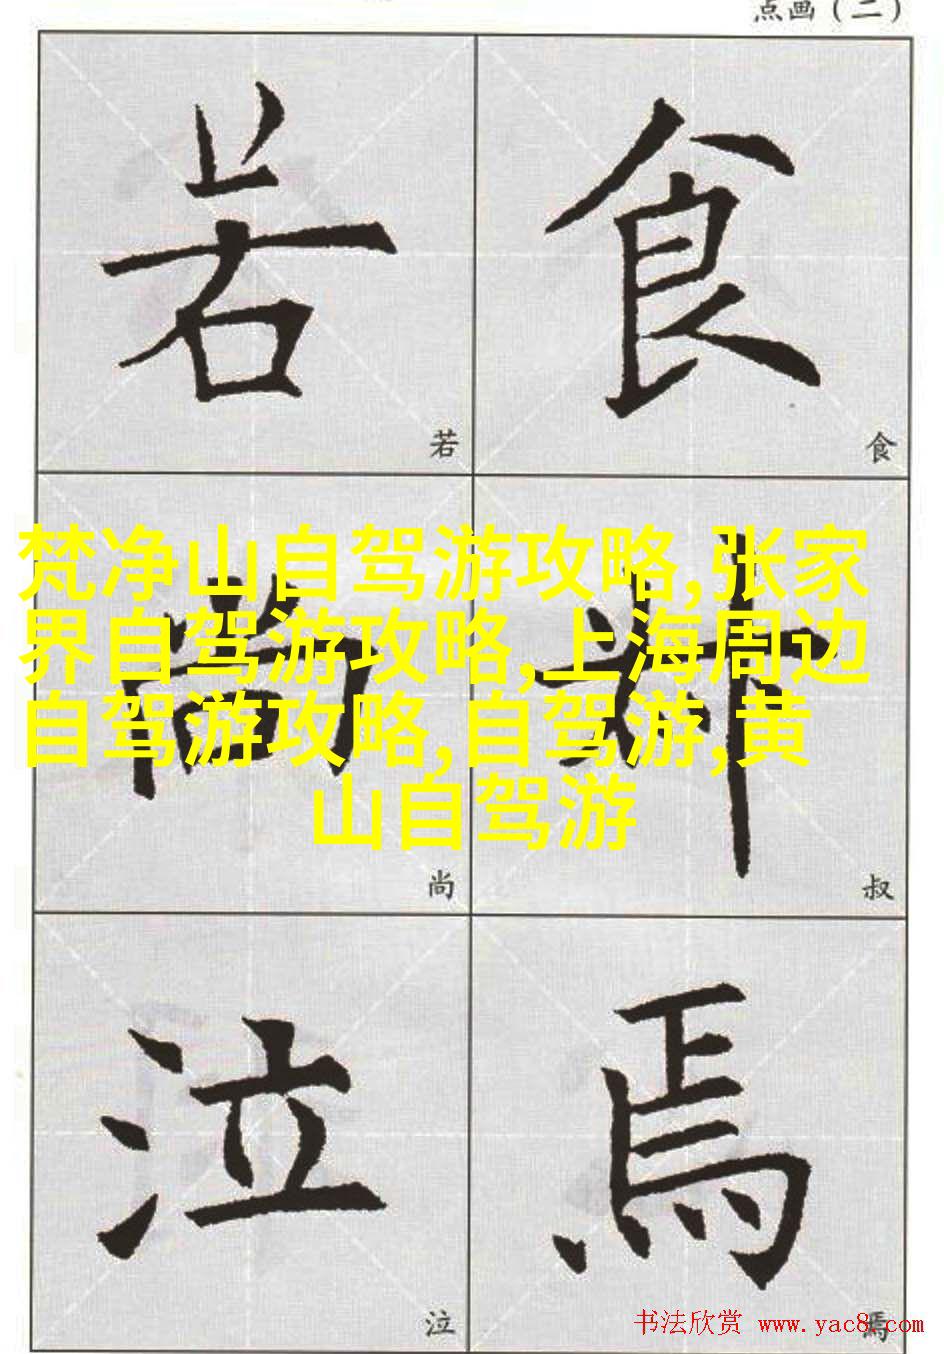 点画（二）
若
食
若
食
梵净山自驾游攻略,张家
界自驾游攻略,上海周边
自驾游攻略,自驾游,黄
山自驾游
尚
叔
尚
叔
泣
焉
泣
焉
书法欣赏 www.yac8.com